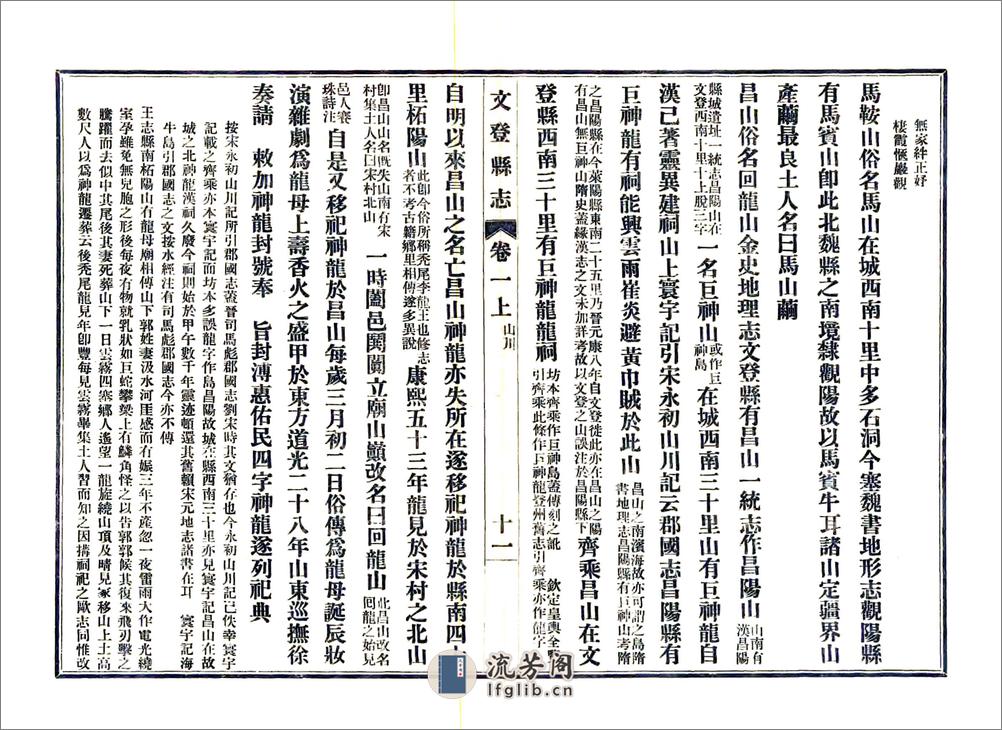 無家絆正好
棲霞愜巖觀
馬鞍山俗名馬山在城西南十里中多石洞今塞魏書地形志觀陽縣
有馬賓山卽此北魏縣之南境隸觀陽故以馬賓牛耳諸山定疆界山
產繭最良土人名曰馬山繭
昌山俗名回龍山金史地理志文登縣有昌山一統志作昌陽山山南有漢昌陽
縣城遺址一統志昌陽山在文登西南十里十上脫三字一名巨神山或作巨神島在城西南三十里山有巨神龍自
漢已著靈異建祠山上寰宇記引宋永初山川記云郡國志昌陽縣有
巨神龍有祠能興雲雨崔炎避黃巾賊於此山昌山之南濱海故亦可謂之島隋書地理志昌陽縣有巨神山考隋
之昌陽縣在今萊陽縣東南二十五里乃晉元康八年自文登徙此亦在昌山之陽有昌山無巨神山隋史蓋緣漢志之文未加詳考故以文登之山誤注於昌陽縣下齊乘昌山在文
登縣西南三十里有巨神龍龍祠坊本齊乘作巨神島蓋傳刻之訛欽定皇輿全覽引齊乘此條作巨神龍登州舊志引齊乘亦作龍字
自明以來昌山之名亡昌山神龍亦失所在遂移祀神龍於縣南四十
里柘陽山此卽今俗所稱禿尾李龍王也修志者不考古籍鄉里相傳遂多異說康熙五十三年龍見於宋村之北山
卽昌山山名旣失山南有宋村集土人名曰宋村北山一時闔邑闐闐立廟山巔改名曰回龍山此昌山改名回龍之始見
邑人賽珠詩注自是又移祀神龍於昌山每歲三月初二日俗傳爲龍母誕辰妝
演雜劇爲龍母上壽香火之盛甲於東方道光二十八年山東巡撫徐
奏請 敕加神龍封號奉 旨封溥惠佑民四字神龍遂列祀典
按宋永初山川記所引郡國志蓋晉司馬彪郡國志劉宋時其文猶存也今永初山川記已佚幸寰宇
記載之齊乘亦本寰宇記而坊本多誤龍字作島昌陽故城在縣西南三十里亦見寰宇記昌山在故
城之北神龍漢祠久廢今祠則始於甲午數千年靈迹頓還其舊賴宋元地志諸書在耳 寰宇記海
牛島引郡國志之文按水經注有司馬彪郡國志今亦不傳
王志縣南柘陽山有龍母廟相傳山下郭姓妻汲水河厓感而有娠三年不產忽一夜雷雨大作電光繞
室孕雖免無兒胞之形後每夜有物就乳狀如巨蛇攀梁上有鱗角怪之以告郭郭候其復來飛刃擊之
騰躍而去似中其尾後其妻死葬山下一日雲霧四塞鄉人遙望一龍旋繞山頂及晴見冢移山上土高
數尺人以爲神龍遷葬云後禿尾龍見年卽豐每見雲霧畢集土人習而知之因搆祠祀之歐志同惟改
文登縣志
卷一上
山川
十一
流芳阁
lfglib.cn